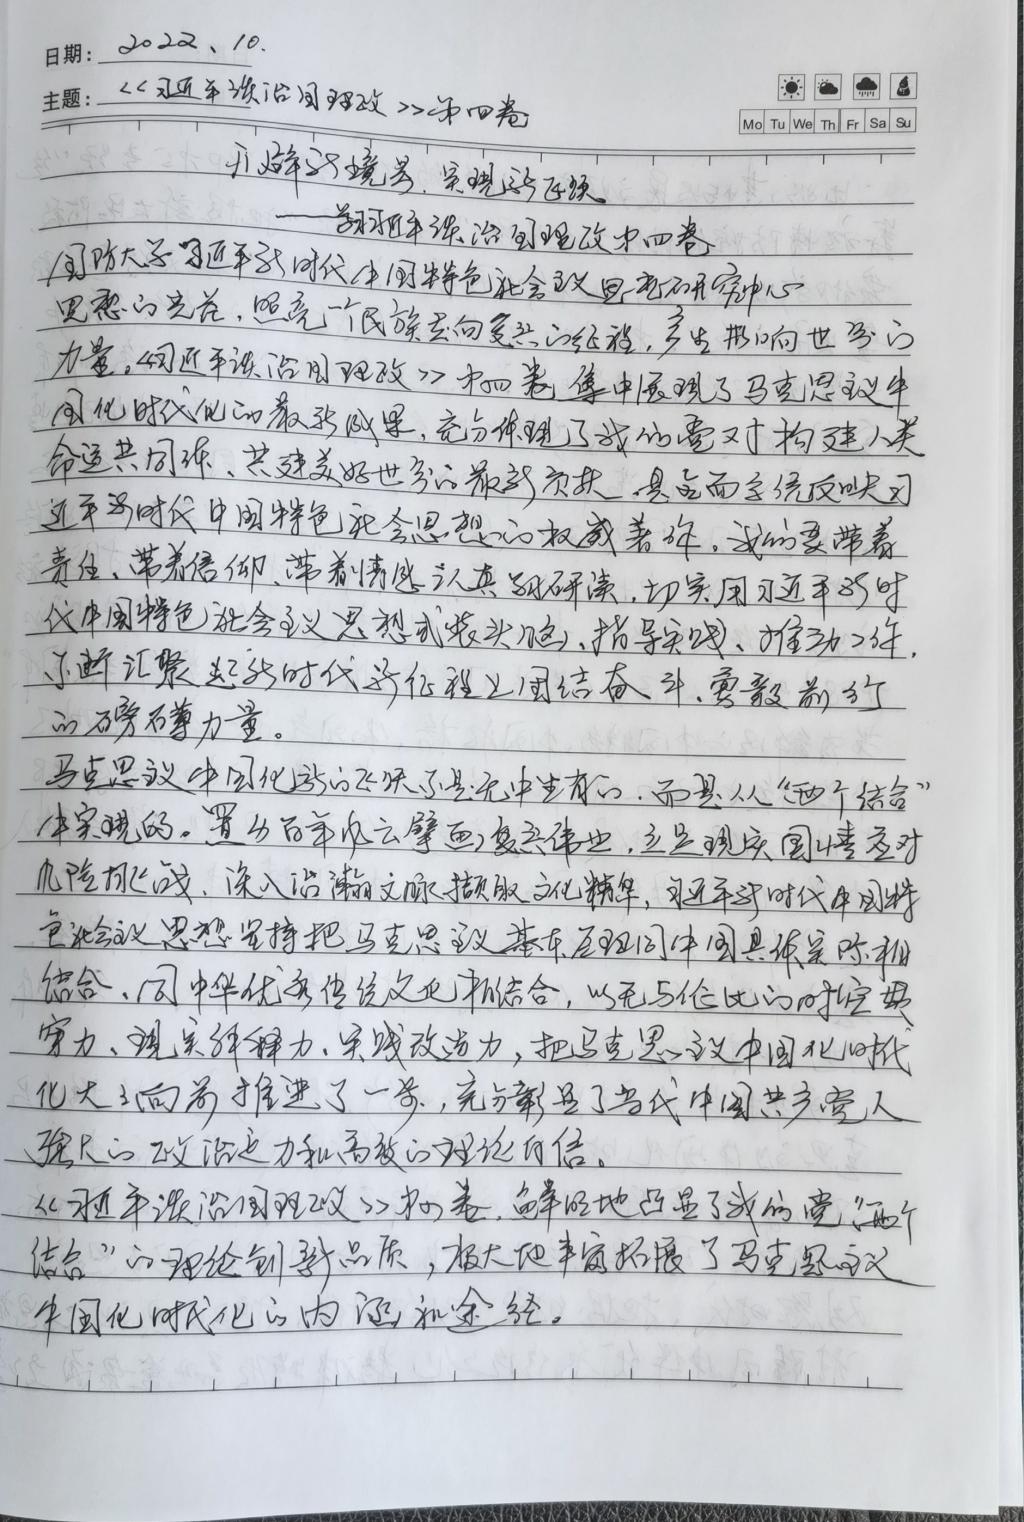 日期: 2022、10.
主题: 《习近平谈治国理政》第四卷
Mo Tu We Th Fr Sa Su
开辟新境界、实现新
——学习习近平谈治国理政第四卷
国防大学习近平新时代中国特色社会主义思想研究中心
思想的光芒，照亮一个民族走向复兴的征程，产生影响世界的
力量。《习近平谈治国理政》第四卷集中展现了马克思主义中
国化时代化的最新成果，充分体现了我们党对构建人类
命运共同体、共建美好世界的最新贡献，是全面系统反映习
近平新时代中国特色社会思想的权威著作，我们要带着
责任、带着信仰、带着情感认真学习研读，切实用习近平新时
代中国特色社会主义思想武装头脑、指导实践、推动工作，
不断汇聚起新时代新征程上团结奋斗、勇毅前行
的磅礴力量。
马克思主义中国化新的飞跃不是无中生有的，而是从“两个结合”
中实现的。置身百年风云擘画复兴伟业，立足现实国情应对
风险挑战，深入浩瀚文脉撷取文化精华，习近平新时代中国特
色社会主义思想坚持把马克思主义基本原理同中国具体实际相
结合、同中华优秀传统文化相结合，以无与伦比的时空贯
穿力、现实解释力、实践改造力，把马克思主义中国化时代
化大大向前推进了一步，充分彰显了当代中国共产党人
强大的政治定力和高度的理论自信。
《习近平谈治国理政》第四卷，鲜明地凸显了我们党“两个
结合”的理论创新品质，极大地丰富拓展了马克思主义
中国化时代化的内涵和途经。